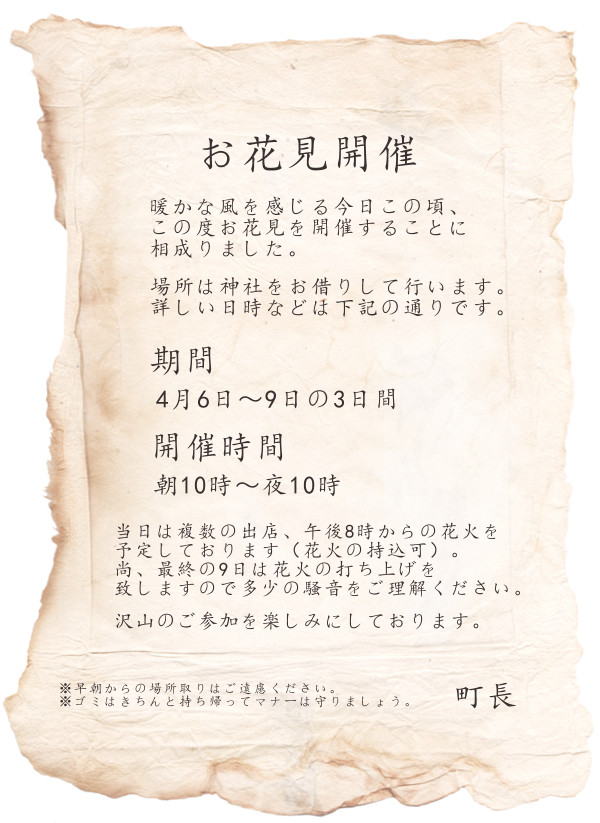 お花見開催
暖かな風を感じる今日この頃、
この度お花見を開催することに
相成りました。
場所は神社をお借りして行います。
詳しい日時などは下記の通りです。
期間
4月6日～9日の3日間
開催時間
朝10時～夜10時
当日は複数の出店、午後8時からの花火を
予定しております（花火の持込可）。
尚、最終の9日は花火の打ち上げを
致しますので多少の騒音をご理解ください。
沢山のご参加を楽しみにしております。
※早朝からの場所取りはご遠慮ください。
※ゴミはきちんと持ち帰ってマナーは守りましょう。
町長